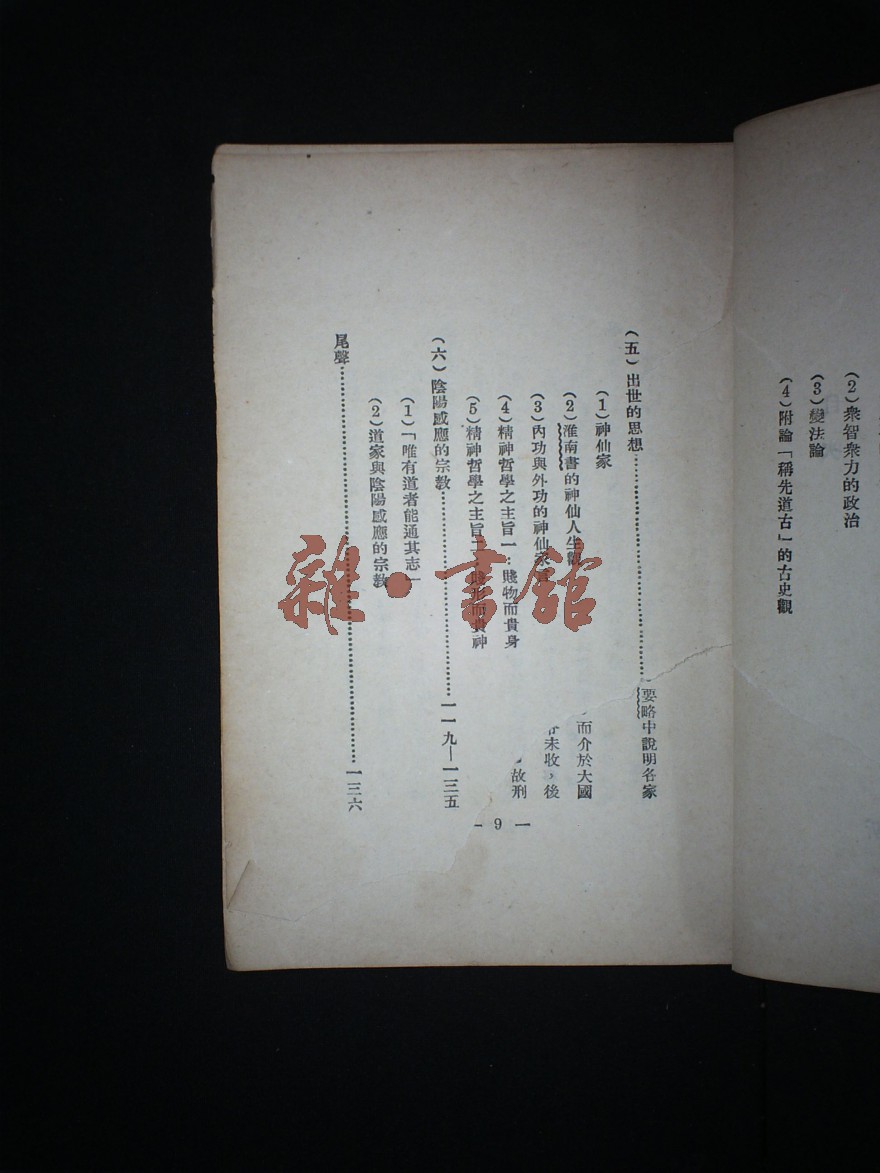 (2) 衆智衆力的政治
(3) 變法論
(4) 附論「稱先道古」的古史觀
(五) 出世的思想……………………………
要略中說明各家
(1) 神仙家
(2) 淮南書的神仙人生觀
而介於大國
(3) 內功與外功的神仙家
未收，後
(4) 精神哲學之主旨一：賤物而貴身
故刑
(5) 精神哲學之主旨二：賤形而貴神
(六) 陰陽感應的宗教……………………………一一九—一三五
(1)「唯有道者能通其志」
(2) 道家與陰陽感應的宗教
尾聲……………………………………………………一三六
— 9 —
雜·書館